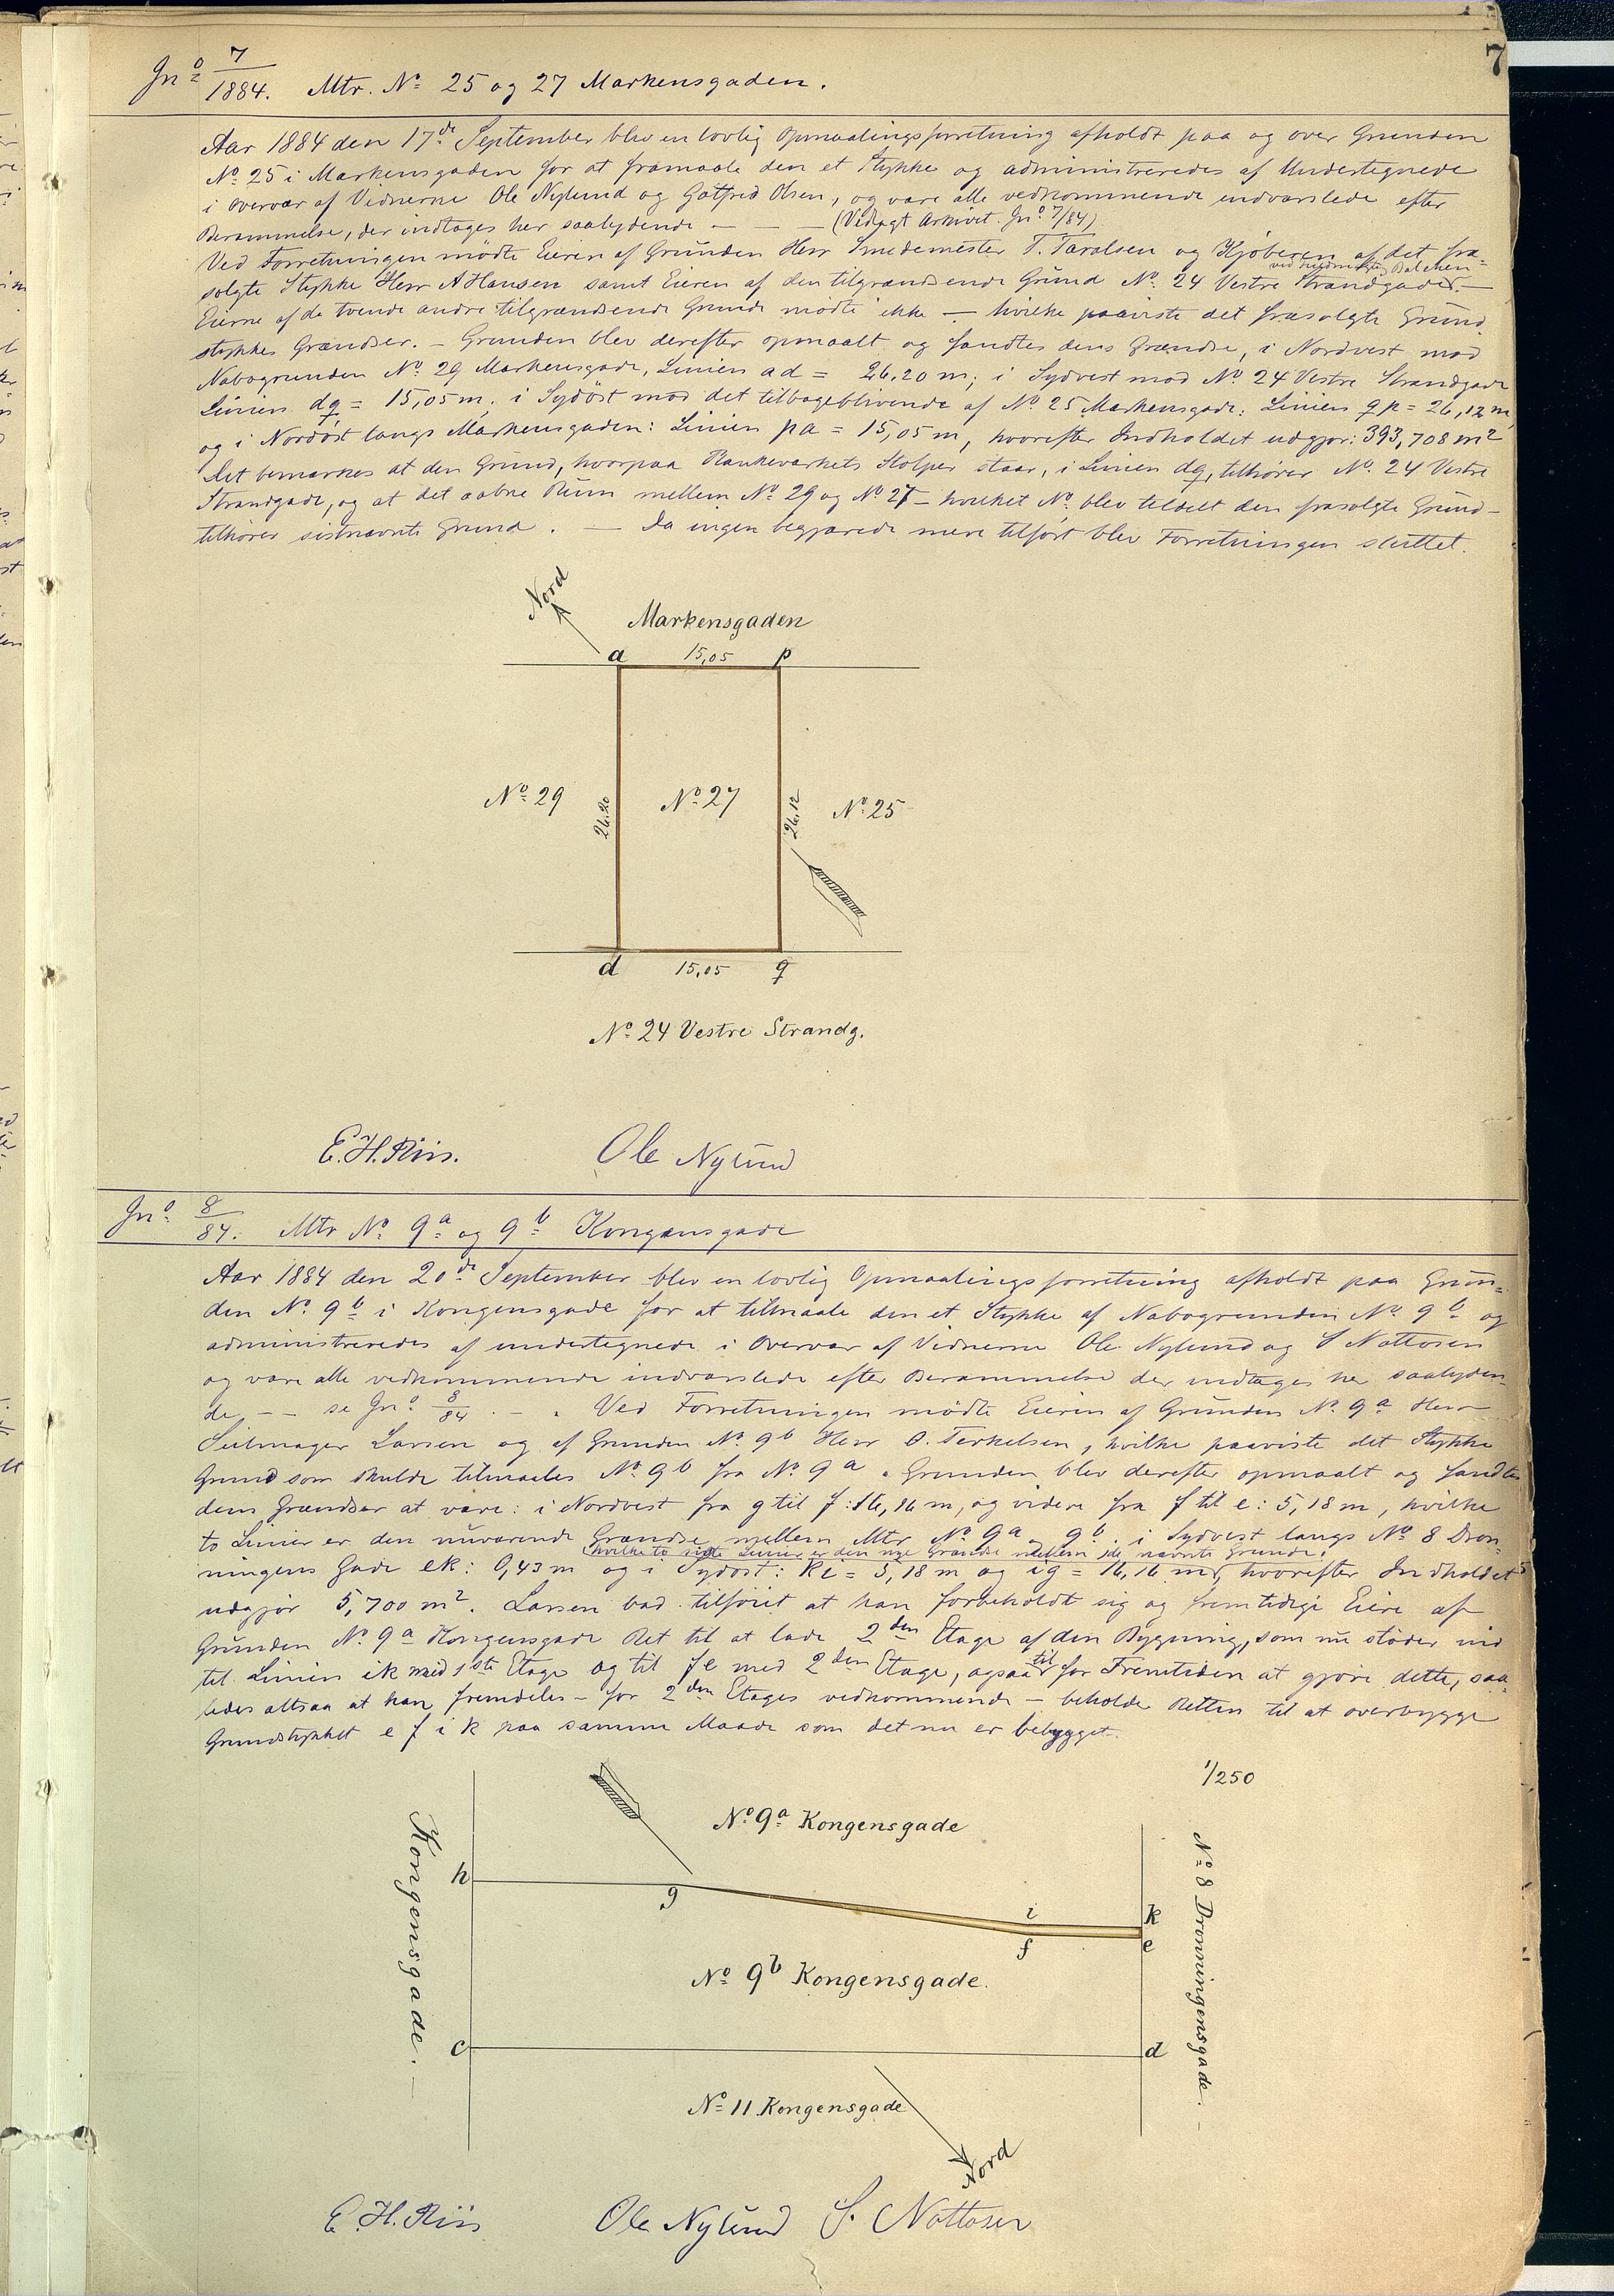 7
Jn° 7/1884. Mtr. N° 25 og 27 Markensgaden.
Aar 1884 den 17de September blev en lovlig Opmaalingsforretning afholdt paa og over Grunden
N° 25 i Markensgaden for at framaale den et Stykke og administreredes af Undertegnede
i overvær af Vidnerne Ole Nylund og Gotfred Olsen, og vare alle vedkommende indvarslede efter
Berammelse, der indtages her saalydende — — — (Vedlagt Arkivet. Jn° 7/84)
Ved Forretningen mødte Eieren af Grunden Herr Smedemester T. Taralsen og Kjøberen af det fra-
solgte Stykke Herr A Hansen samt Eieren af den tilgrændsende Grund N° 24 Vestre Strandgade ved —
Eierne af de tvende andre tilgrændsende Grunde mødte ikke — hvilke paaviste det frasolgte Grund
stykkes Grændser. — Grunden blev derefter opmaalt og fandtes dens Grændse, i Nordvest mod
Nabogrunden N° 29 Markensgade, Linien ad = 26,20 m; i Sydvest mod N° 24 Vestre Strandgade
Linien dq = 15,05 m; i Sydøst mod det tilbageblivende af N° 25 Markensgade: Linien qp = 26,12 m,
og i Nordøst langs Markensgaden: Linien pa = 15,05 m, hvorefter Indholdet udgjør: 393,708 m²
Det bemærkes at den Grund, hvorpaa Plankeværkets Stolper staar, i Linien dq, tilhører N° 24 Vestre
Strandgade, og at det aabne Rum mellem N° 29 og N° 27 — hvilket N° blev tildelt den frasolgte Grund —
tilhører sistnævnte Grund. — Da ingen begjærede mere tilført blev Forretningen sluttet.
Nord
Markensgaden
a 15,05 p
N° 29 26,20 N° 27 26,12 N° 25
d 15,05 q
N° 24 Vestre Strandg.
E. H. Riis. Ole Nylund
Jn° 8/84. Mtr N° 9a og 9b Kongensgade
Aar 1884 den 20de September blev en lovlig Opmaalingsforretning afholdt paa Grun-
den N° 9b i Kongensgade for at tilmaale den et Stykke af Nabogrunden N° 9b og
administreredes af undertegnede i Overvær af Vidnerne Ole Nylund og S Nottosen
og vare alle vedkommende indvarslede efter Berammelse der indtages her saalyden-
de — — se Jn° 8/84. — . Ved Forretningen mødte Eieren af Grunden N° 9a Herr
Seilmager Larsen og af Grunden N° 9b Herr O. Terkelsen, hvilke paaviste det Stykke
Grund som skulde tilmaales N° 9b fra N° 9a. Grunden blev derefter opmaalt og fandtes
dens Grændser at være: i Nordvest fra g til f: 16,16 m, og videre fra f til e: 5,18 m, hvilke
to Linier er den nuværende Grændse mellem Mtr N° 9a - 9b. i Sydvest langs N° 8 Dron-
(hvilke to sidste Linier er den nye Grændse mellem de nævnte Grunde.
ningens Gade ek: 0,43 m og i Sydøst: ki = 5,18 m og ig = 16,16 m, hvorefter Indholdet
udgjør 5,700 m². Larsen bad tilføiet at han forbeholdt sig og fremtidige Eiere af
Grunden N° 9a Kongensgade Ret til at lade 2den Etage af den Bygning, som nu støder ind
til Linien ik med 1ste Etage og til fe med 2den Etage, ogsaa til for Fremtiden at gjøre dette, saa-
ledes altsaa at han fremdeles — for 2den Etages vedkommende — beholde Retten til at overbygge
Grundstykket e f i k paa samme Maade som det nu er bebygget.
1/250
Kongensgade. —
N° 9a Kongensgade
N° 8 Dronningensgade. —
h g i k
f e
N° 9b Kongensgade.
c d
N° 11 Kongensgade
Nord
E. H. Riis Ole Nylund S. Nottosen